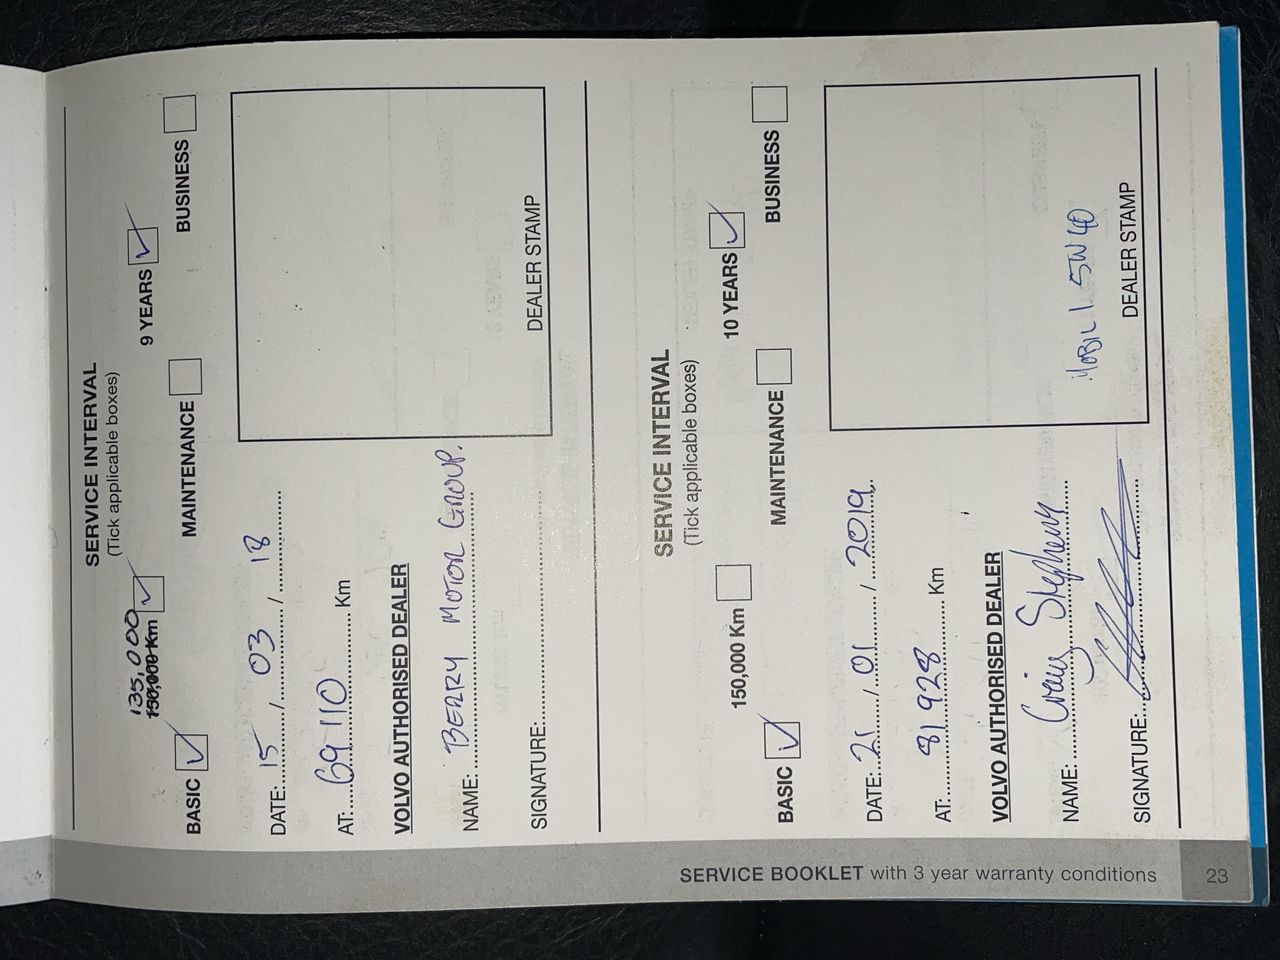 SERVICE INTERVAL
(Tick applicable boxes)
135,000
150,000 Km
9 YEARS
BASIC
MAINTENANCE
BUSINESS
DATE: 15 / 03 / 18
AT: 69 110 Km
VOLVO AUTHORISED DEALER
NAME: BERRY MOTOR GROUP.
SIGNATURE:
DEALER STAMP
SERVICE INTERVAL
(Tick applicable boxes)
150,000 Km
10 YEARS
BASIC
MAINTENANCE
BUSINESS
DATE: 21 / 01 / 2019
AT: 81928 Km
VOLVO AUTHORISED DEALER
NAME: Craig
SIGNATURE:
MOBIL 1 5W40
DEALER STAMP
SERVICE BOOKLET with 3 year warranty conditions
23